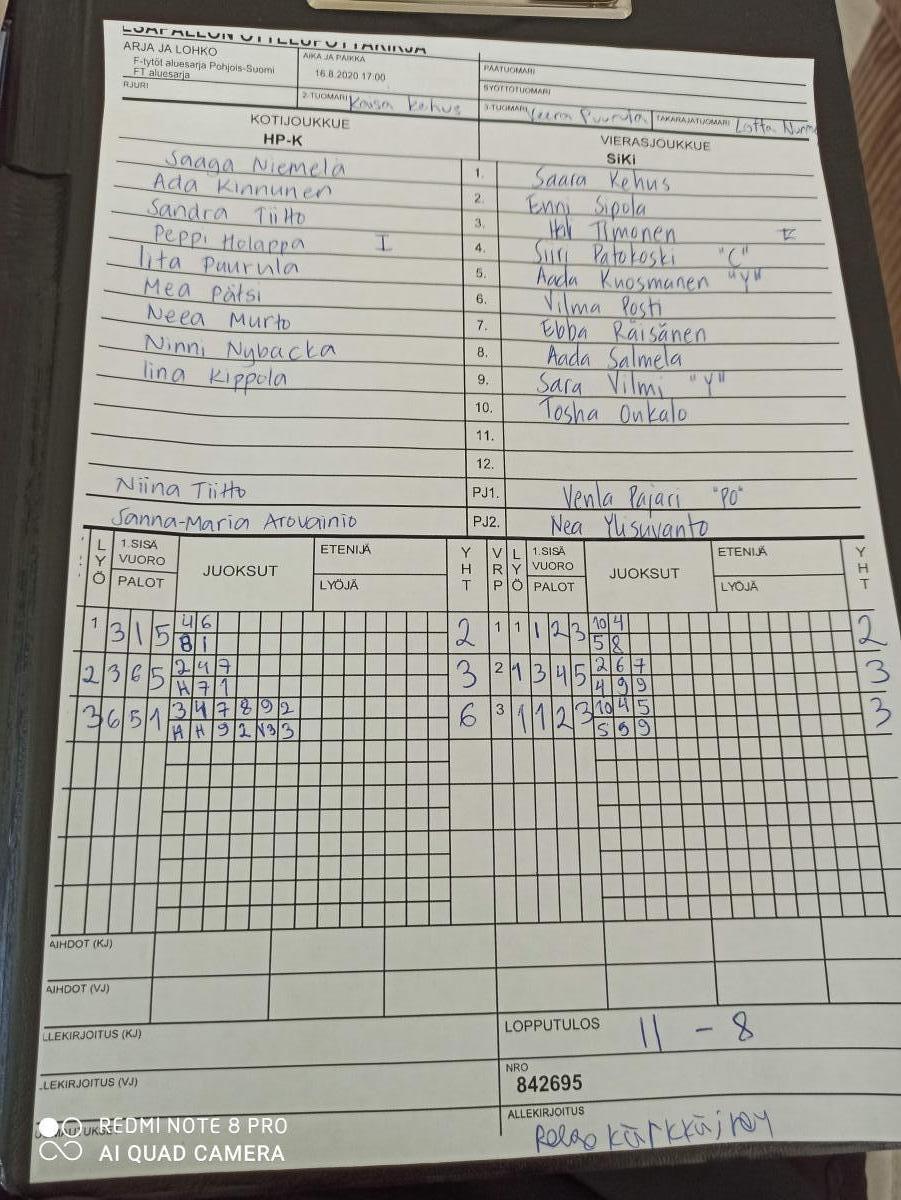 ESÄPALLON OTTELUPÖYTÄKIRJA
ARJA JA LOHKO
F-tytöt aluesarja Pohjois-Suomi
FT aluesarja
AIKA JA PAIKKA
16.8.2020 17:00
PÄÄTUOMARI
SYÖTTÖTUOMARI
RJURI
2-TUOMARI Kaisa Kehus
3-TUOMARI Veera Puurula
TAKARAJATUOMARI Lotta
KOTIJOUKKUE
HP-K
VIERASJOUKKUE
SiKi
Saaga Niemelä 1. Saara Kehus
Ada Kinnunen 2. Enni Sipola
Sandra Tiitto 3. Timonen
Peppi Holappa I 4. Siiri Patokoski "C"
Iita Puurula 5. Aada Kuosmanen "Y"
Mea Pätsi 6. Vilma Posti
Neea Murto 7. Ebba Räisänen
Ninni Nybacka 8. Aada Salmela
Iina Kippola 9. Sara Vilmi "Y"
10. Tosha Onkalo
11.
12.
Niina Tiitto PJ1. Venla Pajari "PO"
Sanna-Maria Arovainio PJ2. Nea Ylisuvanto
LYÖ 1.SISÄ VUORO PALOT JUOKSUT ETENIJÄ LYÖJÄ YHT VRP LYÖ 1.SISÄ VUORO PALOT JUOKSUT ETENIJÄ LYÖJÄ YHT
1 3 1 5 4 6 2 1 1 1 2 3 10 4 2
8 1 5 8
2 3 6 5 2 4 7 3 2 1 3 4 5 2 6 7 3
H 7 1 4 9 9
3 6 5 1 3 4 7 8 9 2 6 3 1 1 2 3 10 4 5 3
H H 9 2 N3 3 5 9 9
AIHDOT (KJ)
AIHDOT (VJ)
LLEKIRJOITUS (KJ)
LOPPUTULOS 11 - 8
LEKIRJOITUS (VJ)
NRO
842695
ALLEKIRJOITUS
REDMI NOTE 8 PRO
AI QUAD CAMERA